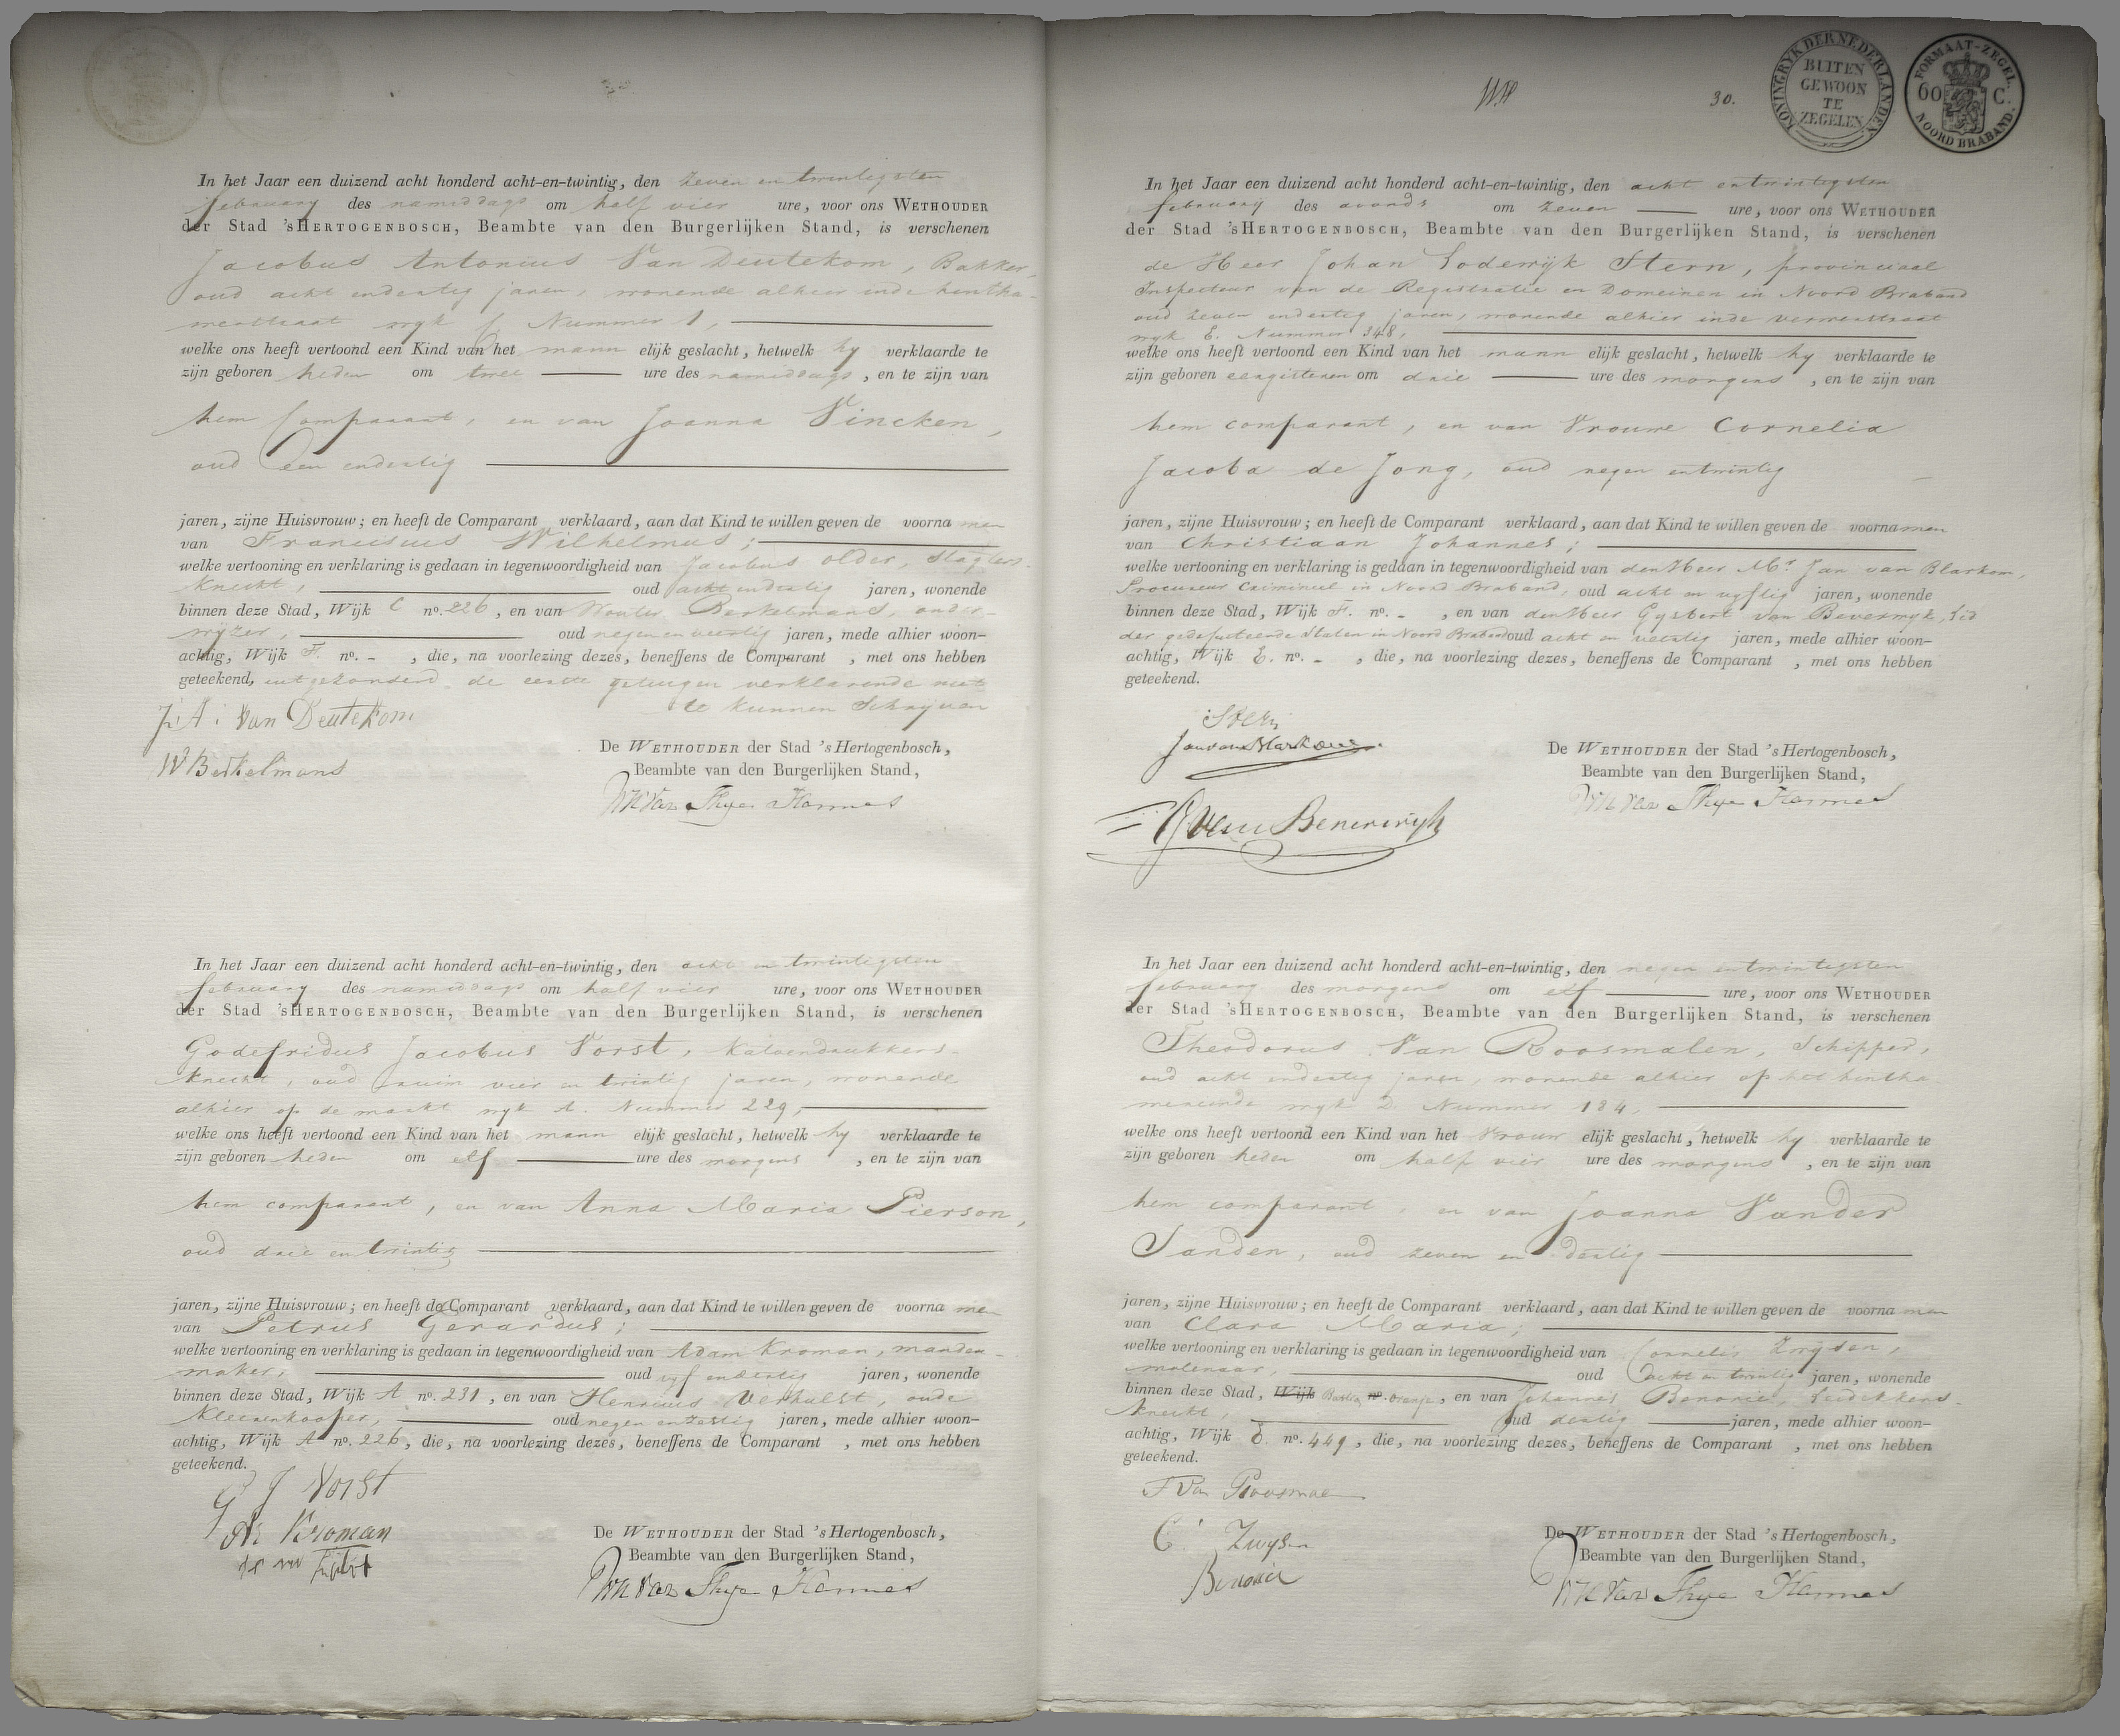 In het Jaar een duizend acht honderd acht-en-twintig, den zeven en twintigsten
february des namiddags om half vier ure, voor ons WETHOUDER
der Stad 'sHERTOGENBOSCH, Beambte van den Burgerlijken Stand, is verschenen
Jacobus Antonius Van Deutekom, Bakker,
oud acht endertig jaren, wonende alhier inde hintha-
merstraat wyk f. Nummer 1,
welke ons heeft vertoond een Kind van het mann elijk geslacht, hetwelk hy verklaarde te
zijn geboren heden om twee ure des namiddags, en te zijn van
hem Comparant, en van Joanna Vincken,
oud een endertig
jaren, zijne Huisvrouw; en heeft de Comparant verklaard, aan dat Kind te willen geven de voorna men
van Franciscus Wilhelmus;
welke vertooning en verklaring is gedaan in tegenwoordigheid van Jacobus older, Slagters-
knecht, oud acht endertig jaren, wonende
binnen deze Stad, Wijk C no. 226, en van Wouter Berkelmans, onder-
wyzer, oud negen en veertig jaren, mede alhier woon-
achtig, Wijk F. no. - , die, na voorlezing dezes, beneffens de Comparant , met ons hebben
geteekend, uitgezonderd de eerste getuigen verklarende niet
te kunnen Schryven
J: A: Van Deutekom
W Berkelmans
De WETHOUDER der Stad 's Hertogenbosch,
Beambte van den Burgerlijken Stand,
In het Jaar een duizend acht honderd acht-en-twintig, den acht en twintigsten
february des namiddags om half vier ure, voor ons WETHOUDER
der Stad 'sHERTOGENBOSCH, Beambte van den Burgerlijken Stand, is verschenen
Godefridus Jacobus Vorst, Katoendrukkers-
knecht, oud ruim vier en twintig jaren, wonende
alhier op de markt wyk A. Nummer 229,
welke ons heeft vertoond een Kind van het mann elijk geslacht, hetwelk hy verklaarde te
zijn geboren heden om elf ure des morgens , en te zijn van
hem comparant, en van Anna Maria Pierson,
oud drie en twintig
jaren, zijne Huisvrouw; en heeft de Comparant verklaard, aan dat Kind te willen geven de voorna men
van Petrus Gerardus;
welke vertooning en verklaring is gedaan in tegenwoordigheid van Adam Kroman, manden-
maker, oud vyf endertig jaren, wonende
binnen deze Stad, Wijk A no. 231, en van Henricus Verhulst, oude
Kleerenkooper, oud negen enzestig jaren, mede alhier woon-
achtig, Wijk A no. 226, die, na voorlezing dezes, beneffens de Comparant , met ons hebben
geteekend.
G J Vorst
Kroman
De WETHOUDER der Stad 's Hertogenbosch,
Beambte van den Burgerlijken Stand,
30.
KONINGRYK DER NEDERLANDEN
BUITEN
GEWOON
TE
ZEGELEN
FORMAAT-ZEGEL.
60 C.
NOORD BRABAND.
In het Jaar een duizend acht honderd acht-en-twintig, den acht entwintigsten
february des avonds om zeven ure, voor ons WETHOUDER
der Stad 'sHERTOGENBOSCH, Beambte van den Burgerlijken Stand, is verschenen
de Heer Johan Lodewyk Stern, provinciaal
Inspecteur van de Registratie en Domeinen in Noord Braband
oud zeven endertig jaren, wonende alhier inde verwerstraat
wyk E. Nummer 348,
welke ons heeft vertoond een Kind van het mann elijk geslacht, hetwelk hy verklaarde te
zijn geboren eergisteren om drie ure des morgens , en te zijn van
hem comparant, en van Vrouwe Cornelia
Jacoba de Jong, oud negen entwintig
jaren, zijne Huisvrouw; en heeft de Comparant verklaard, aan dat Kind te willen geven de voornamen
van Christiaan Johannes;
welke vertooning en verklaring is gedaan in tegenwoordigheid van den Heer Mr. Jan van Blarkom,
Procureur Crimineel in Noord Braband, oud acht en vyftig jaren, wonende
binnen deze Stad, Wijk F. no. - , en van den Heer Gysbert van Beverwyk, Lid
der gedeputeerde Staten in Noord Braband oud acht en veertig jaren, mede alhier woon-
achtig, Wijk E. no. - , die, na voorlezing dezes, beneffens de Comparant , met ons hebben
geteekend.
Stern
Jan van Blarkom
G van Beverwyk
De WETHOUDER der Stad 's Hertogenbosch,
Beambte van den Burgerlijken Stand,
In het Jaar een duizend acht honderd acht-en-twintig, den negen entwintigsten
february des morgens om elf ure, voor ons WETHOUDER
der Stad 'sHERTOGENBOSCH, Beambte van den Burgerlijken Stand, is verschenen
Theodorus Van Roosmalen, Schipper,
oud acht endertig jaren, wonende alhier op het hintha
mereinde wyk D. Nummer 184,
welke ons heeft vertoond een Kind van het Vrouw elijk geslacht, hetwelk hy verklaarde te
zijn geboren heden om half vier ure des morgens , en te zijn van
hem comparant, en van Joanna Vander
Sanden, oud zeven en dertig
jaren, zijne Huisvrouw; en heeft de Comparant verklaard, aan dat Kind te willen geven de voorna men
van Clara Maria;
welke vertooning en verklaring is gedaan in tegenwoordigheid van Cornelis Zwysen,
molenaar, oud acht en twintig jaren, wonende
binnen deze Stad, Wijk no. Oranje, en van Johannes Benorie, Leidekkers-
knecht, oud dertig jaren, mede alhier woon-
achtig, Wijk E. no. 449, die, na voorlezing dezes, beneffens de Comparant , met ons hebben
geteekend.
C. Zwysen
De WETHOUDER der Stad 's Hertogenbosch,
Beambte van den Burgerlijken Stand,